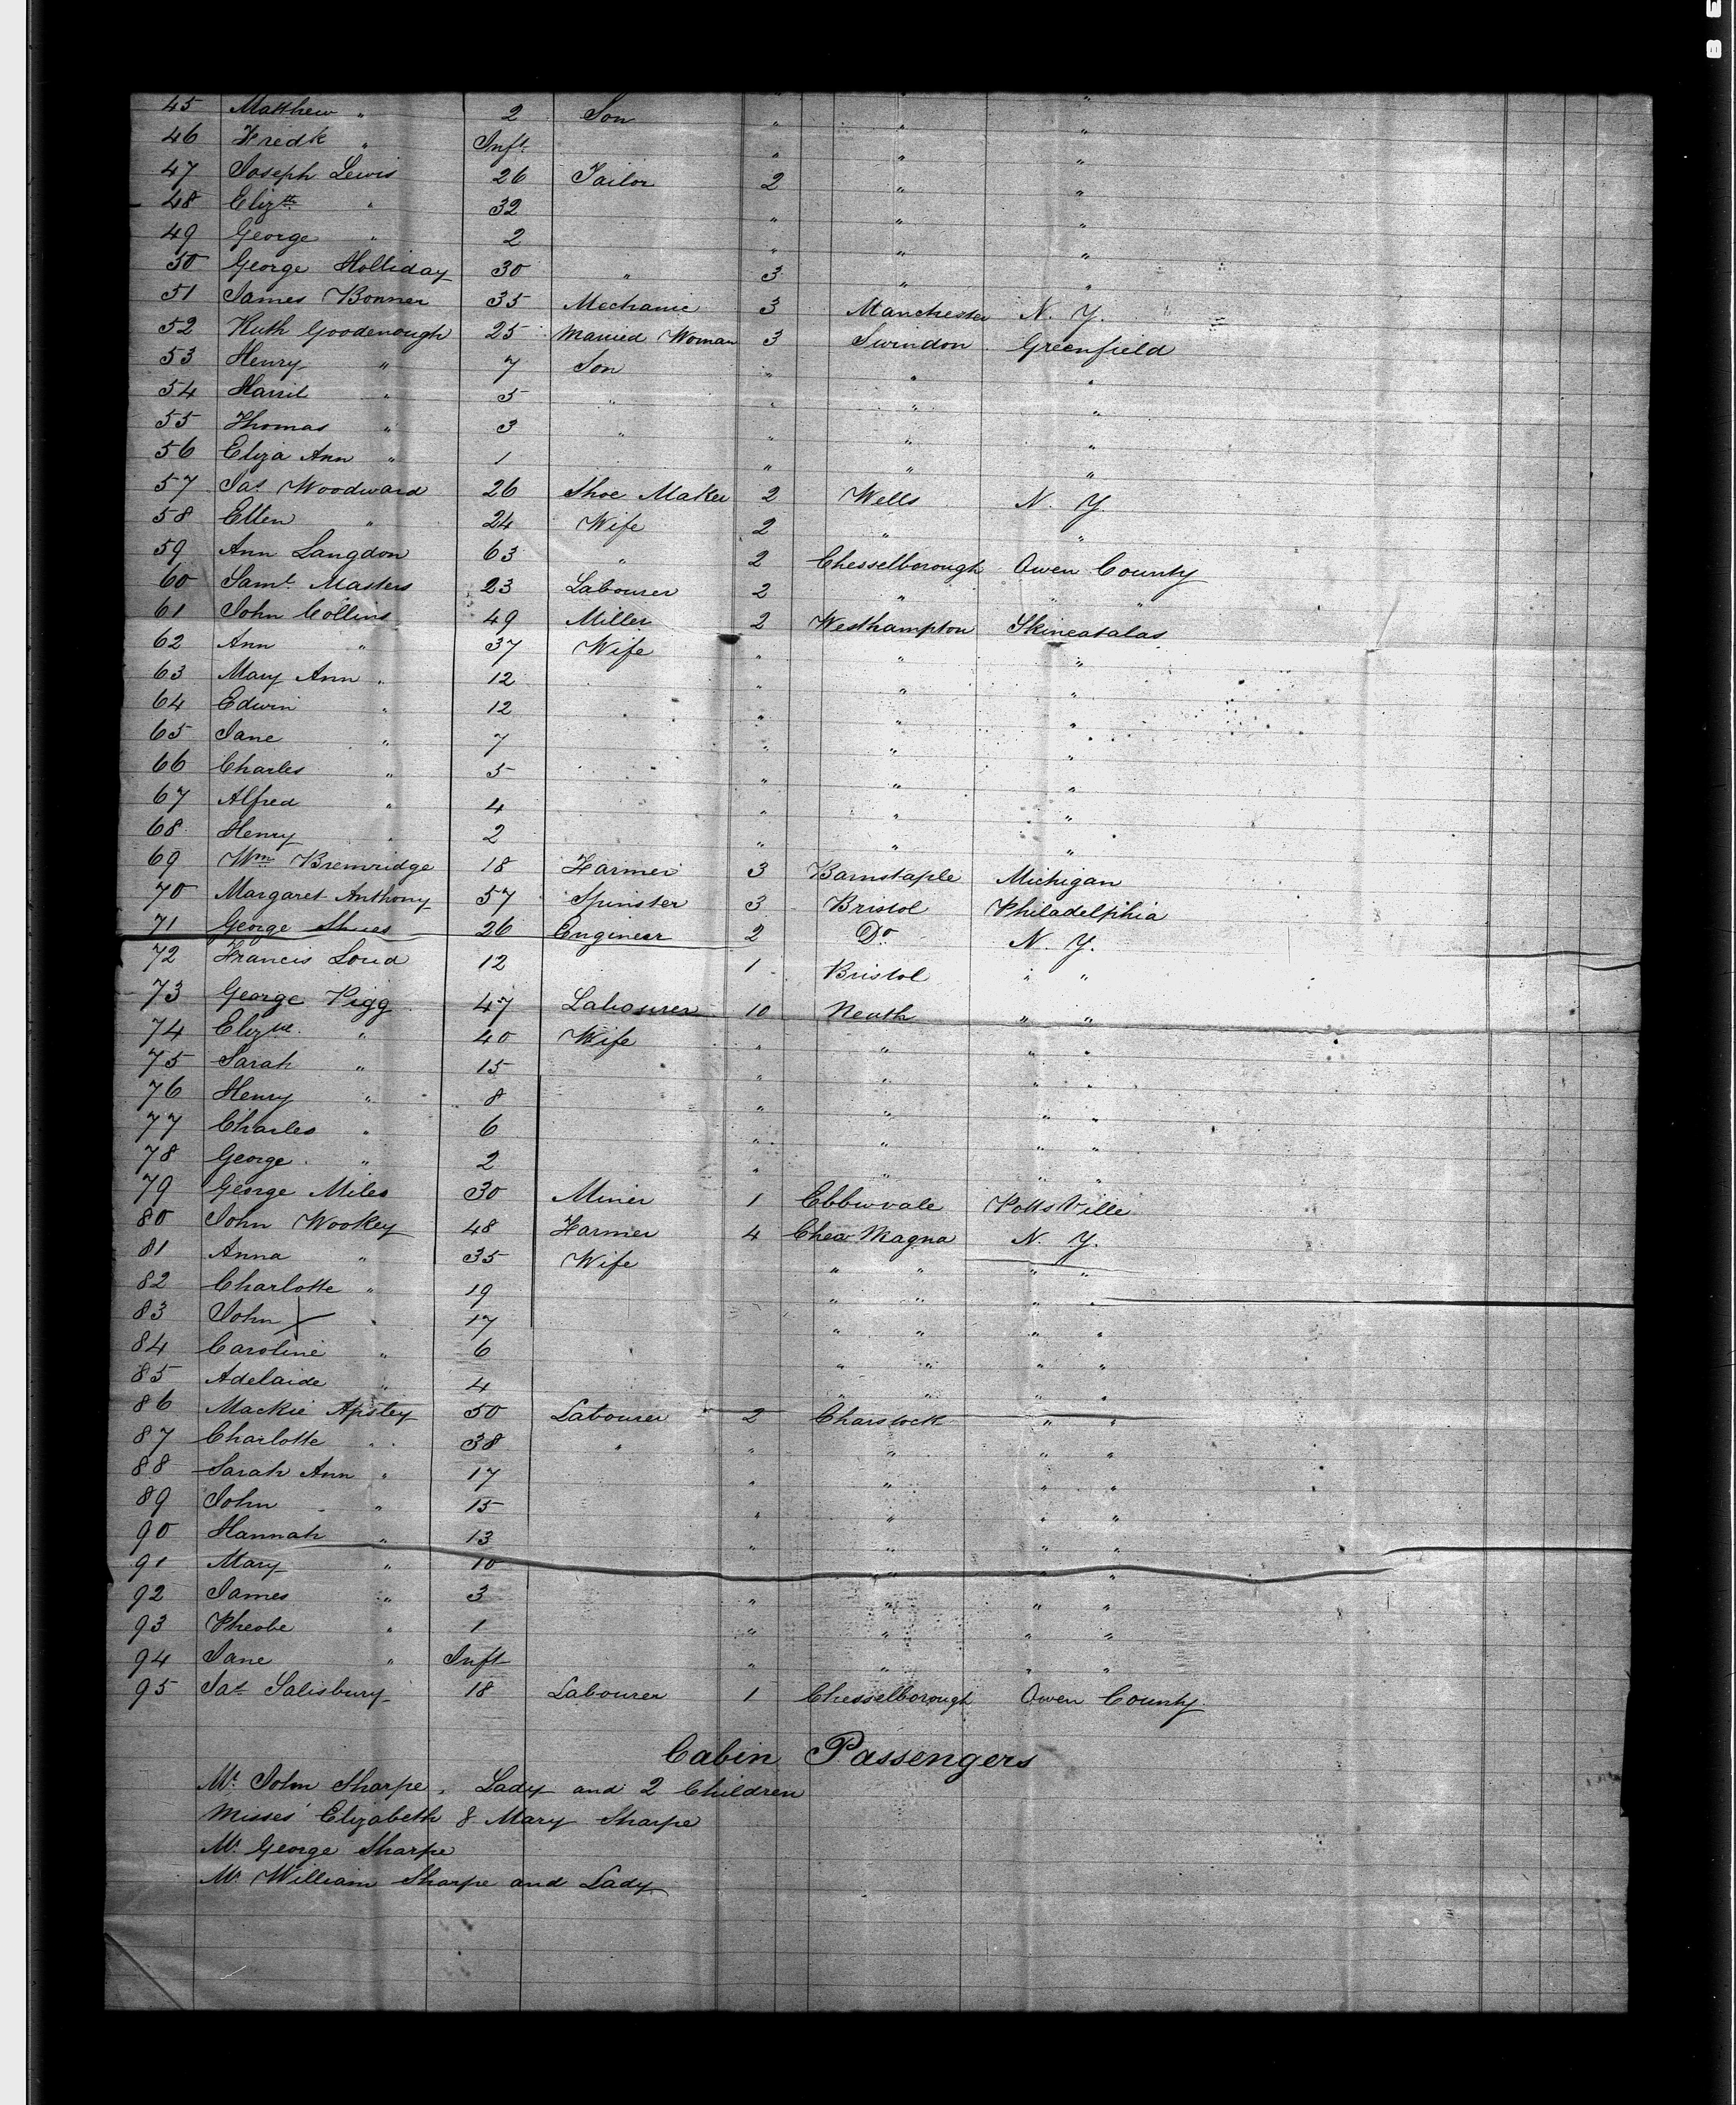 45 Matthew " 2 Son " " "
46 Fredk " Inft " " "
47 Joseph Lewis 26 Tailor 2 " "
48 Elizth " 32 " " "
49 George " 2 " " "
50 George Holliday 30 " 3 " "
51 James Bonner 35 Mechanic 3 Manchester N. Y.
52 Ruth Goodenough 25 Married Woman 3 Swindon Greenfield
53 Henry " 7 Son " " "
54 Harriet " 5 " " " "
55 Thomas " 3 " " " "
56 Eliza Ann " 1 " " "
57 Jas Woodward 26 Shoe Maker 2 Wells N. Y.
58 Ellen " 24 Wife 2 " "
59 Ann Langdon 63 " 2 Chesselborough Owen County
60 Saml Masters 23 Labourer 2 " " "
61 John Collins 49 Miller 2 Westhampton Skineatalas
62 Ann " 37 Wife " " "
63 Mary Ann " 12 " " "
64 Edwin " 12 " " "
65 Jane " 7 " " "
66 Charles " 5 " " "
67 Alfred " 4 " " "
68 Henry " 2 " " "
69 Wm Bremridge 18 Farmer 3 Barnstaple Michigan
70 Margaret Anthony 57 Spinster 3 Bristol Philadelphia
71 George 26 Engineer 2 Do N. Y.
72 Francis Loud 12 1 Bristol " "
73 George Pigg 47 Labourer 10 Neath " "
74 Elizth " 40 Wife " " " "
75 Sarah " 15 " " " "
76 Henry " 8 " " " "
77 Charles " 6 " " " "
78 George " 2 " " " "
79 George Miles 30 Miner 1 Ebbwvale Potts Ville
80 John Wookey 48 Farmer 4 Chew Magna N. Y.
81 Anna " 35 Wife " " " "
82 Charlotte " 19 " " " "
83 John " 17 " " " "
84 Caroline " 6 " " " "
85 Adelaide " 4 " " " "
86 Mackie Apstey 50 Labourer 2 Charstock " "
87 Charlotte " 38 " " " " "
88 Sarah Ann " 17 " " " "
89 John " 15 " " " "
90 Hannah " 13 " " " "
91 Mary " 10 " " "
92 James " 3 " " " "
93 Pheobe " 1 " " " "
94 Jane " Inft " " " "
95 Jas Salisbury 18 Labourer 1 Chesselborough Owen County
Cabin Passengers
Mr John Sharpe, Lady and 2 Children
Misses Elizabeth & Mary Sharpe
Mr George Sharpe
Mr William Sharpe and Lady